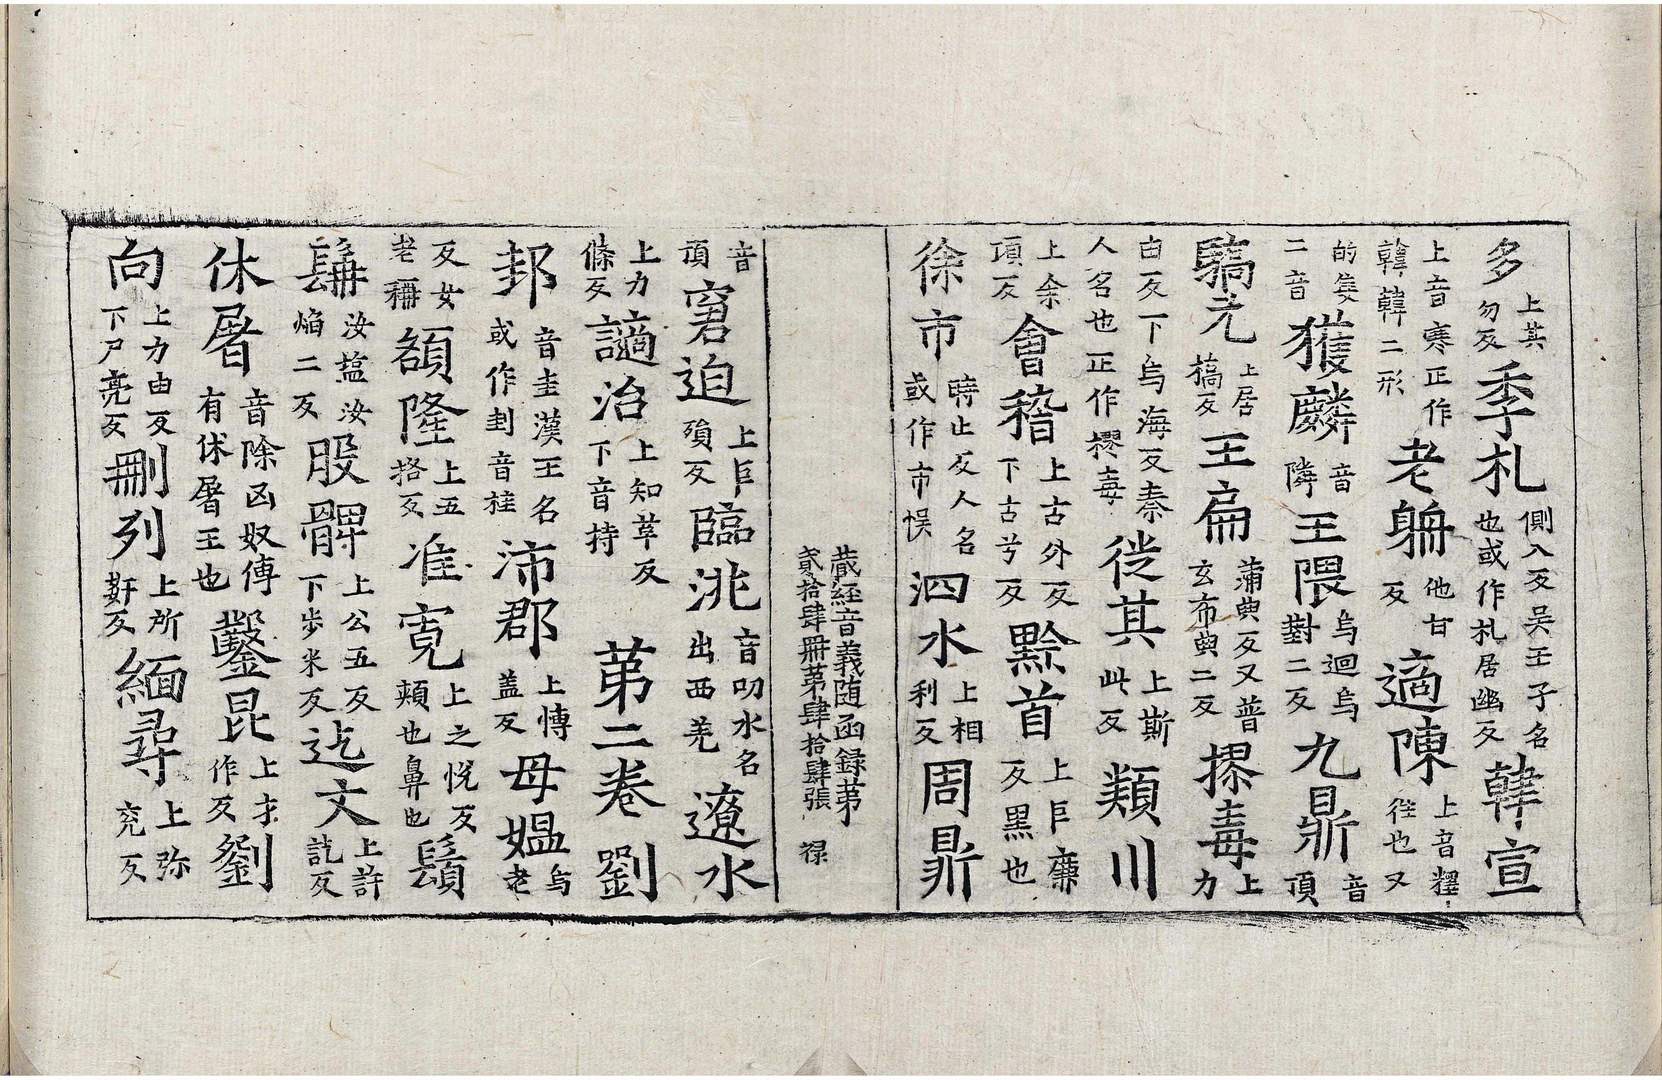 多上其勿反季札側八反吴王子名也或作札居幽反韓宣
上音寒正作韓韓二形老聃他甘反適陳上音釋徃也又
的隻二音獲麟音隣王隈烏迴烏對二反九鼎音頂
驕元上居撟反王扁蒲典反又普玄布典二反摎毒上力
由反下烏海反秦人名也正作摎毐徙其上斯此反類川
上余頂反會稽上古外反下古兮反黔首上巨廉反黑也
徐市時止反人名或作市悮泗水上相利反周鼎
藏經音義随函録第貳拾肆冊第肆拾肆張 禄
音頂窘迫上巨殞反臨洮音叨水名出西羌遼水
上力條反讁治上知革反下音持第二卷劉
邽音圭漢王名或作卦音挂沛郡上愽盖反母媼烏老
反女老額隆上五格反准寛上之悅反頬也鼻也鬚
髯汝塩汝焔二反股髀上公五反下步米反迄文上許訖反
休屠音除匈奴傳有休屠王也鑿昆上才作反劉
向上力由反下尸亮反刪列上所姧反緬尋上弥兖反